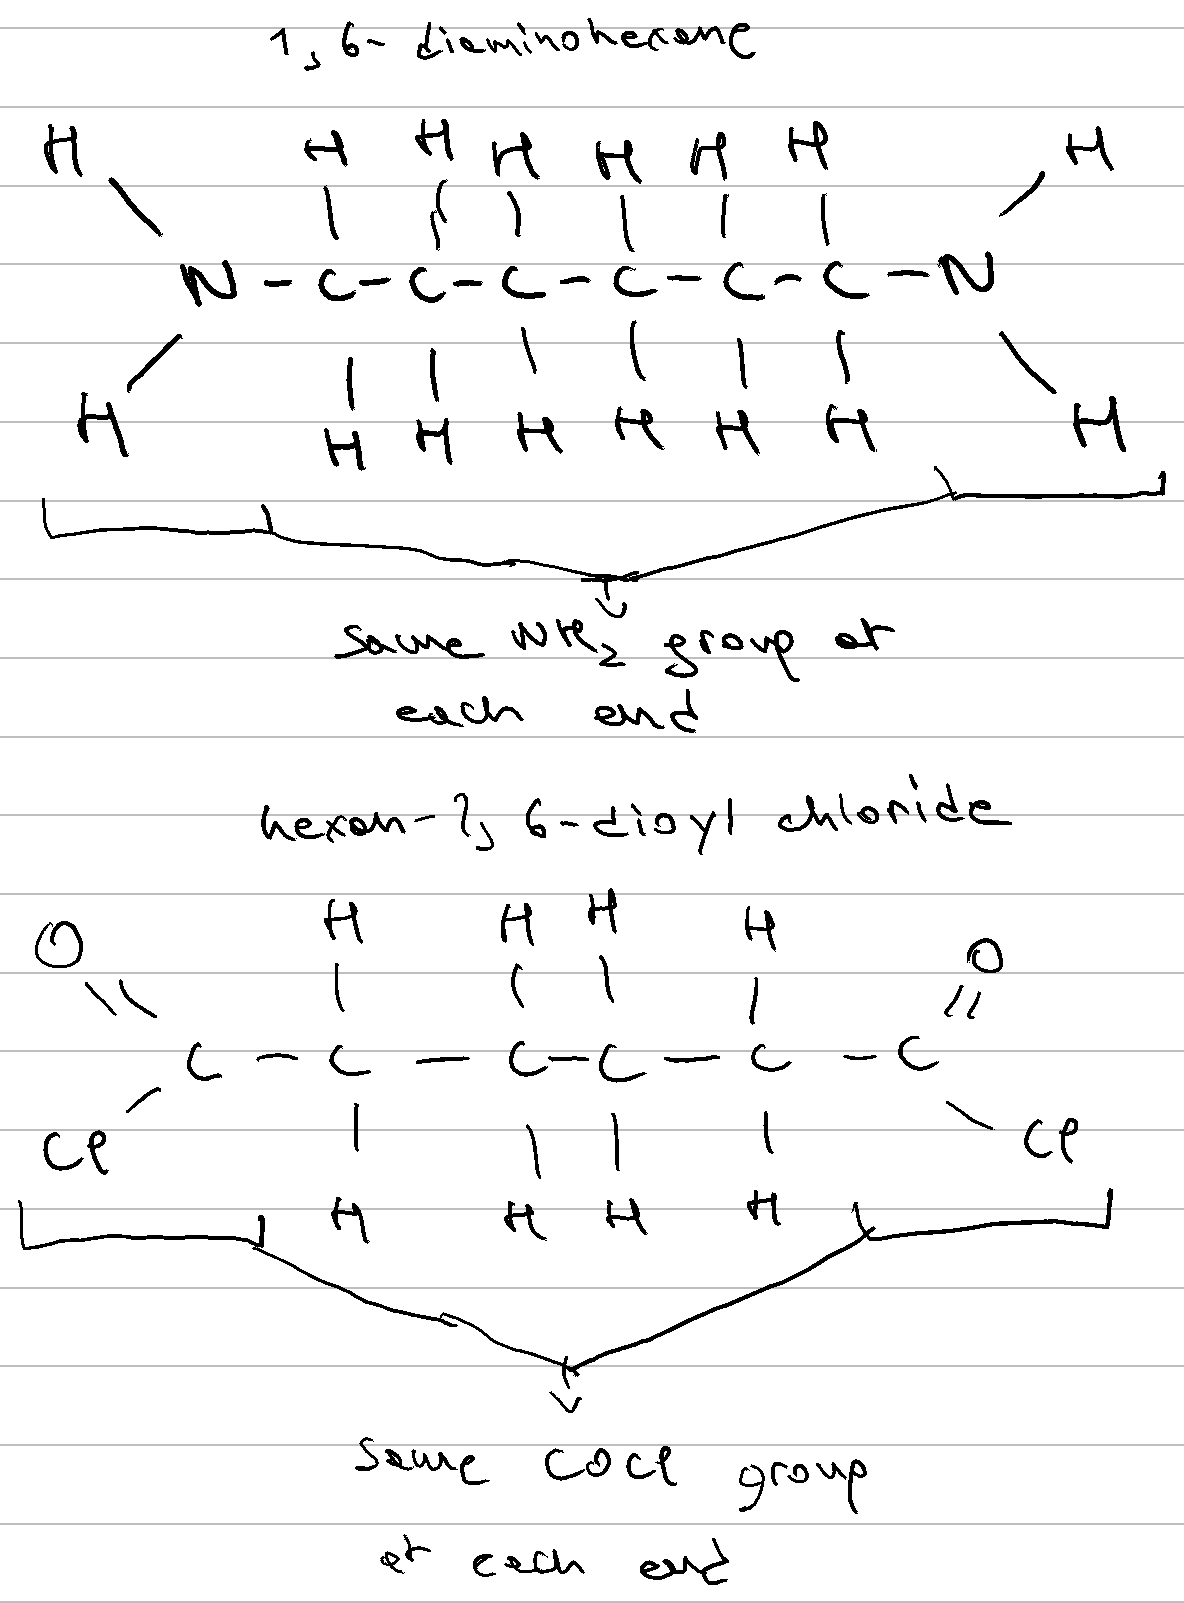 1, 6- diaminohexane
H H H H H H H H
N - C - C - C - C - C - C - N
H H H H H H H H
Same NH2 group at
each end
hexan-1, 6-dioyl chloride
O H H H H O
C - C - C - C - C - C
Cl Cl
H H H H
Same COCl group
at each end